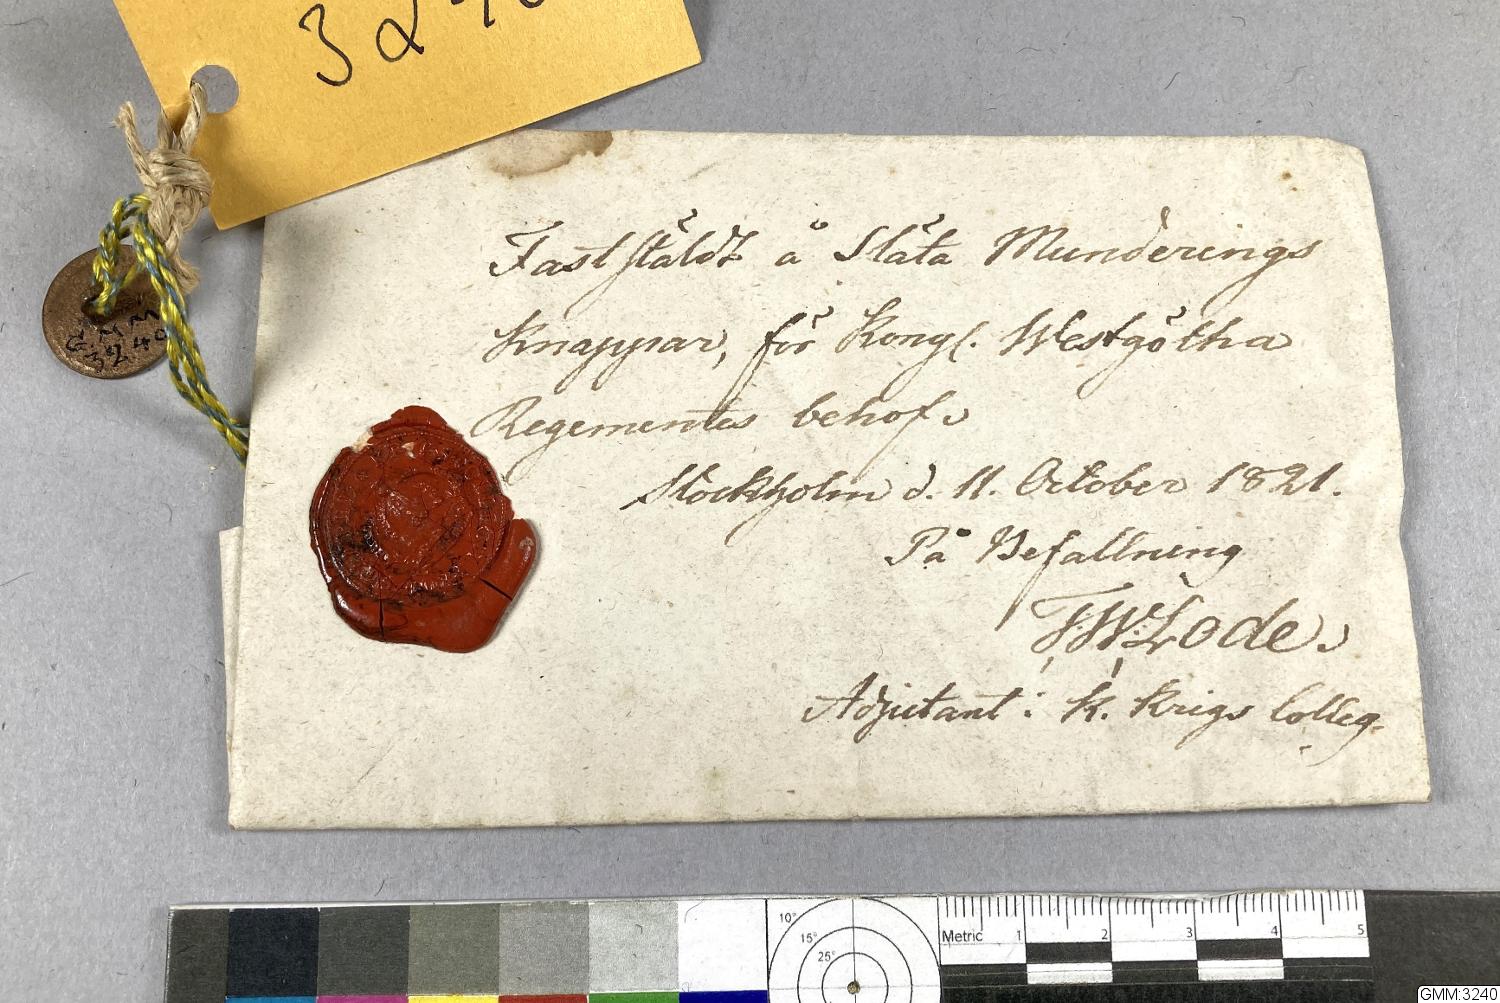 3240
GMM
3240
Fastställdt å Släta Munderings
Knappar, för Kongl. Westgötha
Regementes behof.
Stockholm d. 11. October 1821.
På Befallning
F.W. Lode.
Adjutant i K. Krigs Colleg.
10°
15°
25°
Metric 1 2 3 4 5
GMM:3240